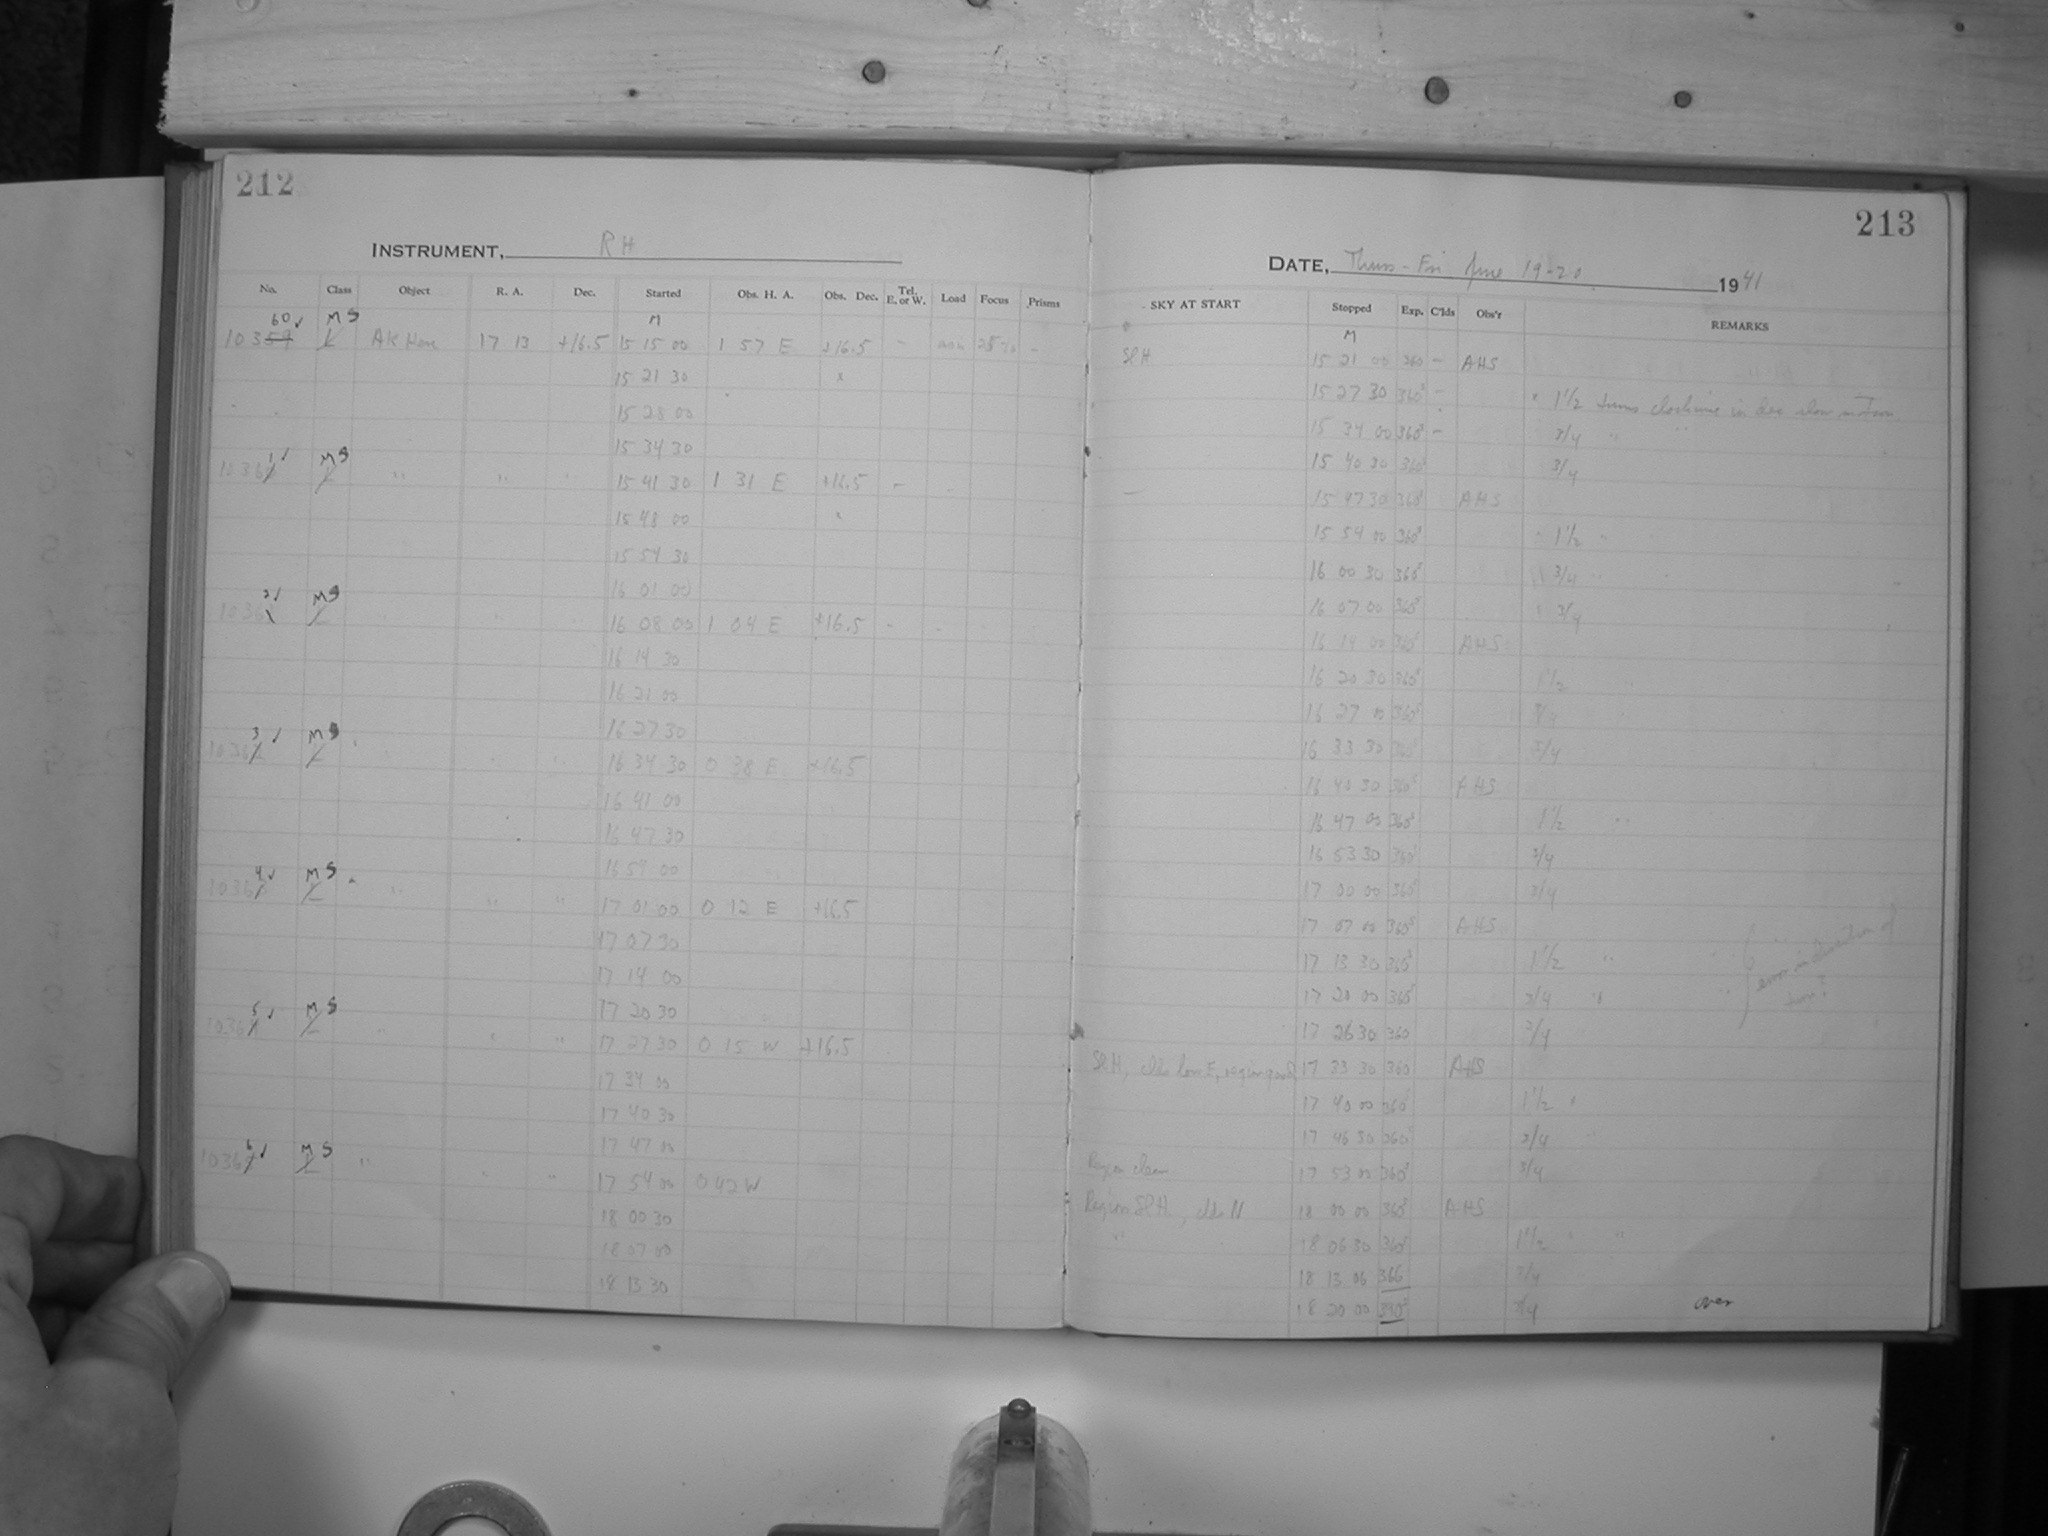 212
INSTRUMENT, RH
No. Class Object R. A. Dec. Started Obs. H. A. Obs. Dec. Tel. E. or W. Load Focus Prisms
60 ✓ M S M
10359 L AK Her 17 13 +16.5 15 15 00 1 57 E +16.5 - -
15 21 30 x
15 28 00
15 34 30
1 ✓ M S
1036 L " " " 15 41 30 1 31 E +16.5 -
15 48 00 x
15 54 30
16 01 00
2 ✓ M S
1036 L 16 08 00 1 04 E +16.5 -
16 14 30
16 21 00
16 27 30
3 ✓ M S
1036 L " " 16 34 30 0 38 E +16.5
16 41 00
16 47 30
16 54 00
4 ✓ M S
1036 L " " " 17 01 00 0 12 E +16.5
17 07 30
17 14 00
17 20 30
5 ✓ M S
1036 L " " " 17 27 30 0 15 W +16.5
17 34 00
17 40 30
17 47 00
6 ✓ M S
1036 L " " " 17 54 00 0 42 W
18 00 30
18 07 00
18 13 30
213
DATE, Thurs - Fri June 19-20 1941
SKY AT START Stopped Exp. C'lds Obs'r REMARKS
M
SlH 15 21 00 360 - AHS
15 27 30 360s - x 1 1/2 turns clockwise in dec slow motion
15 34 00 360s - 3/4 "
15 40 30 360s 3/4
— 15 47 30 360s AHS
15 54 00 360s 1 1/2 "
16 00 30 360s 3/4 "
16 07 00 360s 3/4
16 14 00 360s AHS
16 20 30 360s 1 1/2
16 27 00 360s 3/4
16 33 30 360s 3/4
16 40 30 360s AHS
16 47 00 360s 1 1/2 "
16 53 30 360s 3/4
17 00 00 360s 3/4
17 07 00 360s AHS
17 13 30 360s 1 1/2 "
17 20 00 360s 3/4 "
17 26 30 360 3/4
error in direction of
turn?
SlH, clds low E, region good 17 33 30 360 AHS
17 40 00 360s 1 1/2 "
17 46 30 360s 3/4
Region clear 17 53 00 360s 3/4
Region SlH, clds N 18 00 00 360s AHS
" 18 06 30 360s 1 1/2 " "
18 13 06 366 3/4
18 20 00 390s 3/4 over